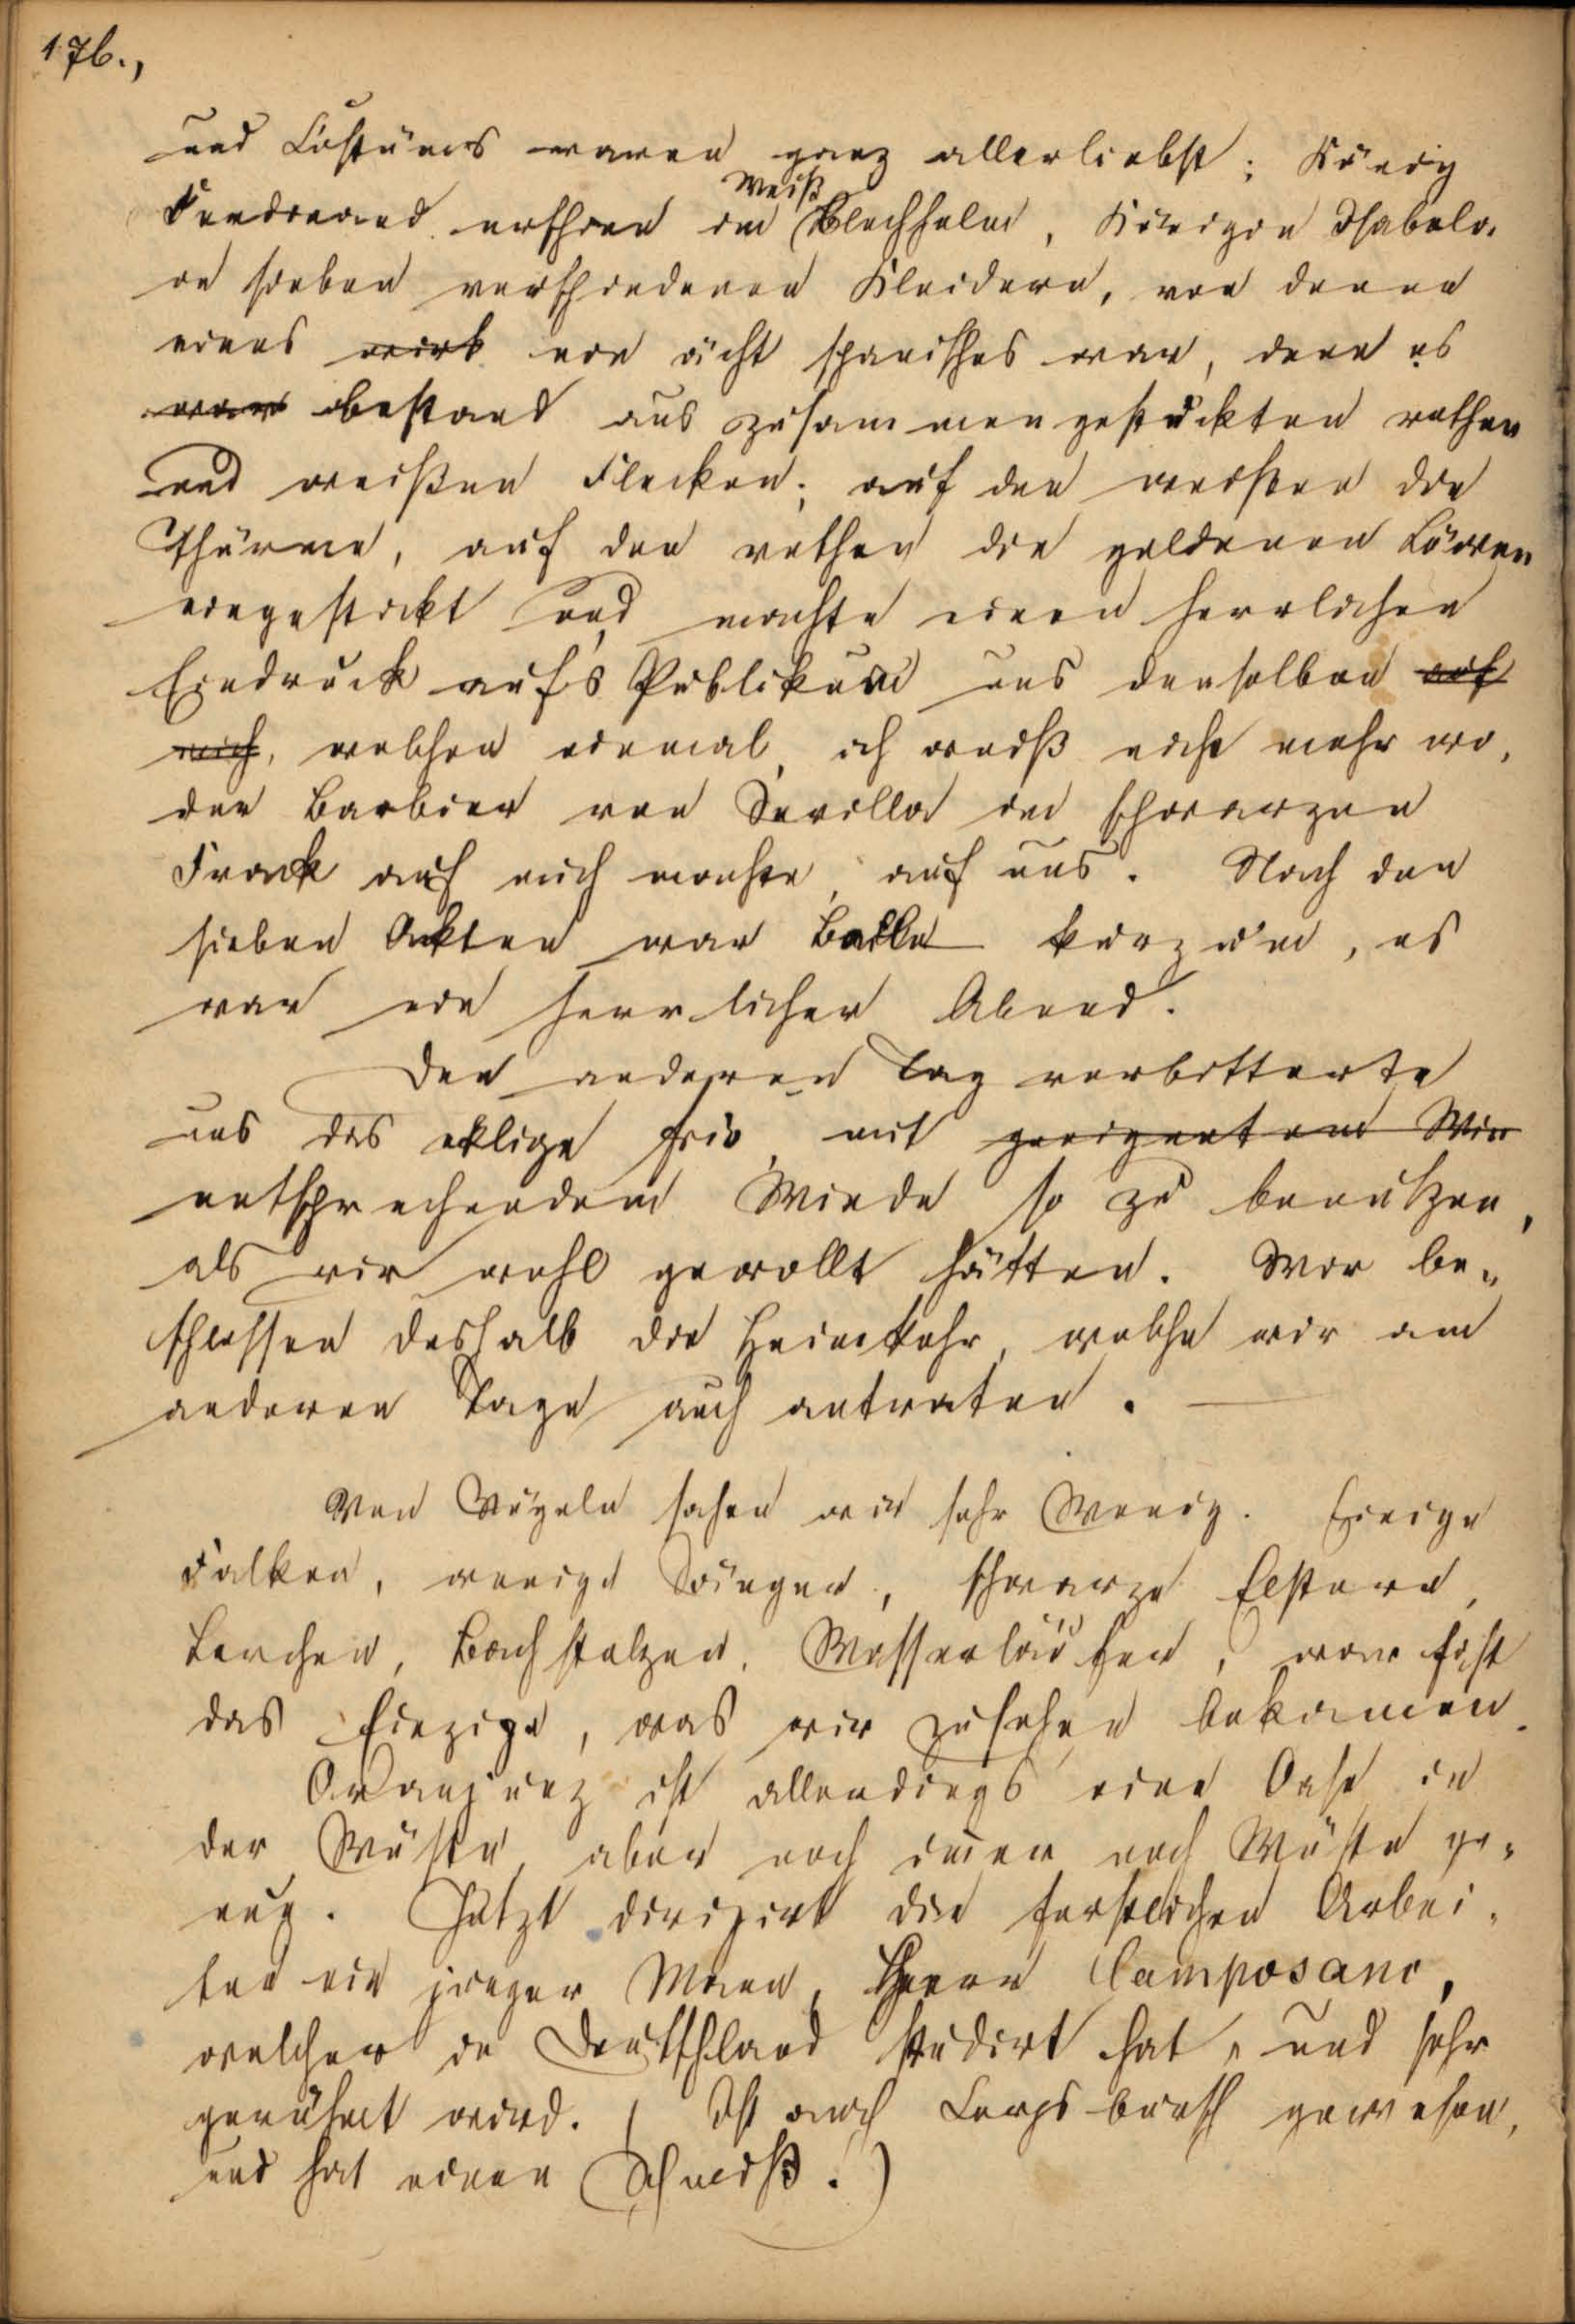 176.,
und Costüms waren ganz allerliebst; König
Weiß
Ferdinand erschien im Blechhelm, Königin Isabela
in sieben verschiedenen Kleidern, von denen
eines wirk ein ächt spanisches war, denn es
war bestand aus zusammengestückten rothen
und weißen Flecken; auf den weißen die
Thürme, auf den rothen die goldenen Löwen
eingestickt und machte einen herrlichen
Eindruck auf's Publikum uns denselben auf
mich, welchen einmal, ich weiß nicht mehr wo,
der Barbier von Sevilla im schwarzen
Frack auf mich machte, auf uns. Nach den
sieben Akten war Balle kurzum, es
war ein herrlicher Abend.
Den anderen Tag verbitterte
uns das eklige frio, mit geeignetem Win
entsprechendem Winde so zu benutzen,
als wir wohl gewollt hätten. Wir be-
schlossen deshalb die Heimkehr, welche wir am
anderen Tage auch antraten. —
Von Vögeln sahen wir sehr Wenig. Einige
Falken, wenige Sänger, schwarze Elstern,
Lerchen, Bachstelzen, Wasserläufer, war fast
das Einzige, was wir zusehen bekamen.
Aranjuez ist allerdings eine Oase in
der Wüste, aber noch immer noch Wüste ge-
nug. Jetzt dirigirt die forstlichen Arbei-
ten ein junger Mann, Herr Camposano,
welcher in Deutschland studirt hat, und sehr
gerühmt wird. (Ist auch Corpsbursch gewesen,
und hat einen Schmiß.)